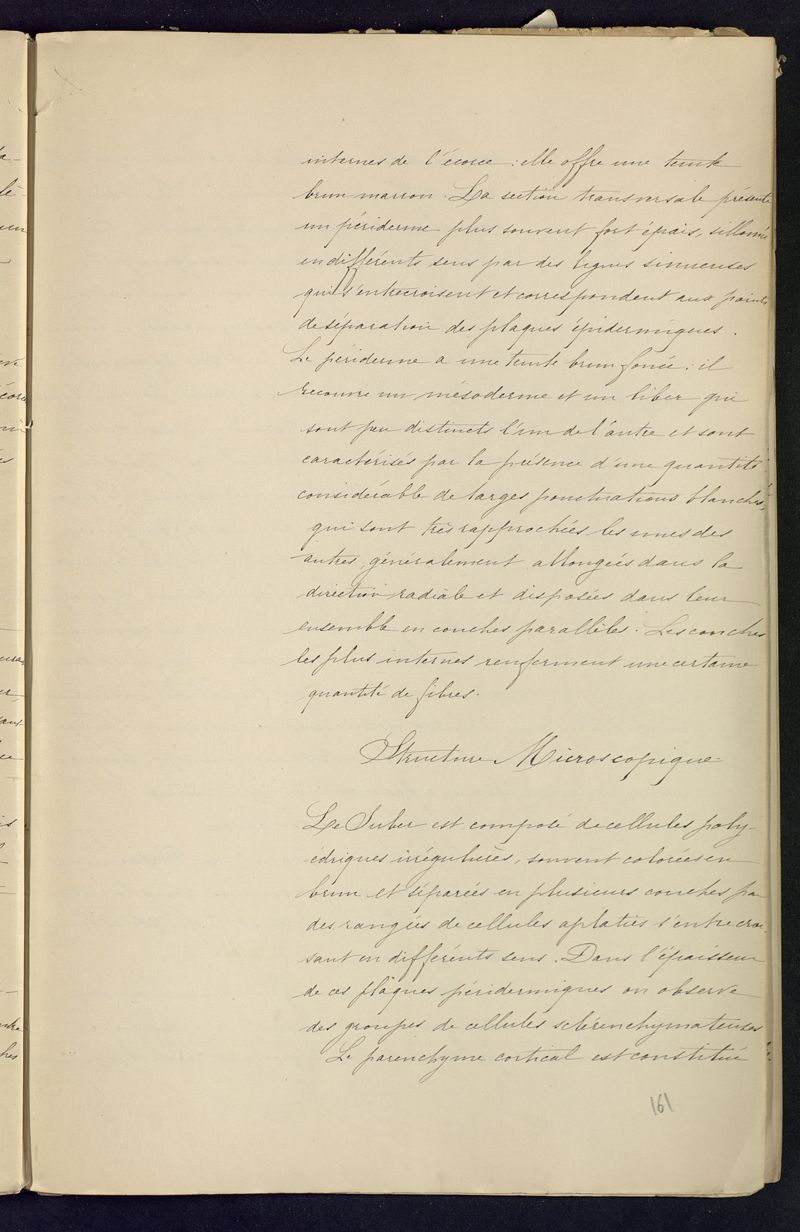 internes de l'écorce : elle offre une teinte
brun marron. La section transversale présente
un périderme plus souvent fort épais, sillonné
en différents sens par des lignes sinueuses
qui s'entrecroisent et correspondent aux points
de séparation des plaques épidermiques.
Le périderme a une teinte brun foncé ; il
recouvre un mésoderme et un liber qui
sont peu distincts l'un de l'autre et sont
caractérisés par la présence d'une quantité
considérable de larges ponctuations blanches,
qui sont très rapprochées les unes des
autres, généralement allongées dans la
direction radiale et disposées dans leur
ensemble en couches parallèles. Les couches
les plus internes renferment une certaine
quantité de fibres.
Structure Microscopique
Le Suber est composé de cellules poly-
édriques irrégulières, souvent colorées en
brun et séparées en plusieurs couches par
des rangées de cellules aplaties s'entrecroi-
sant en différents sens. Dans l'épaisseur
de ces plaques péridermiques on observe
des groupes de cellules sclérenchymateuses
Le parenchyme cortical est constitué
161